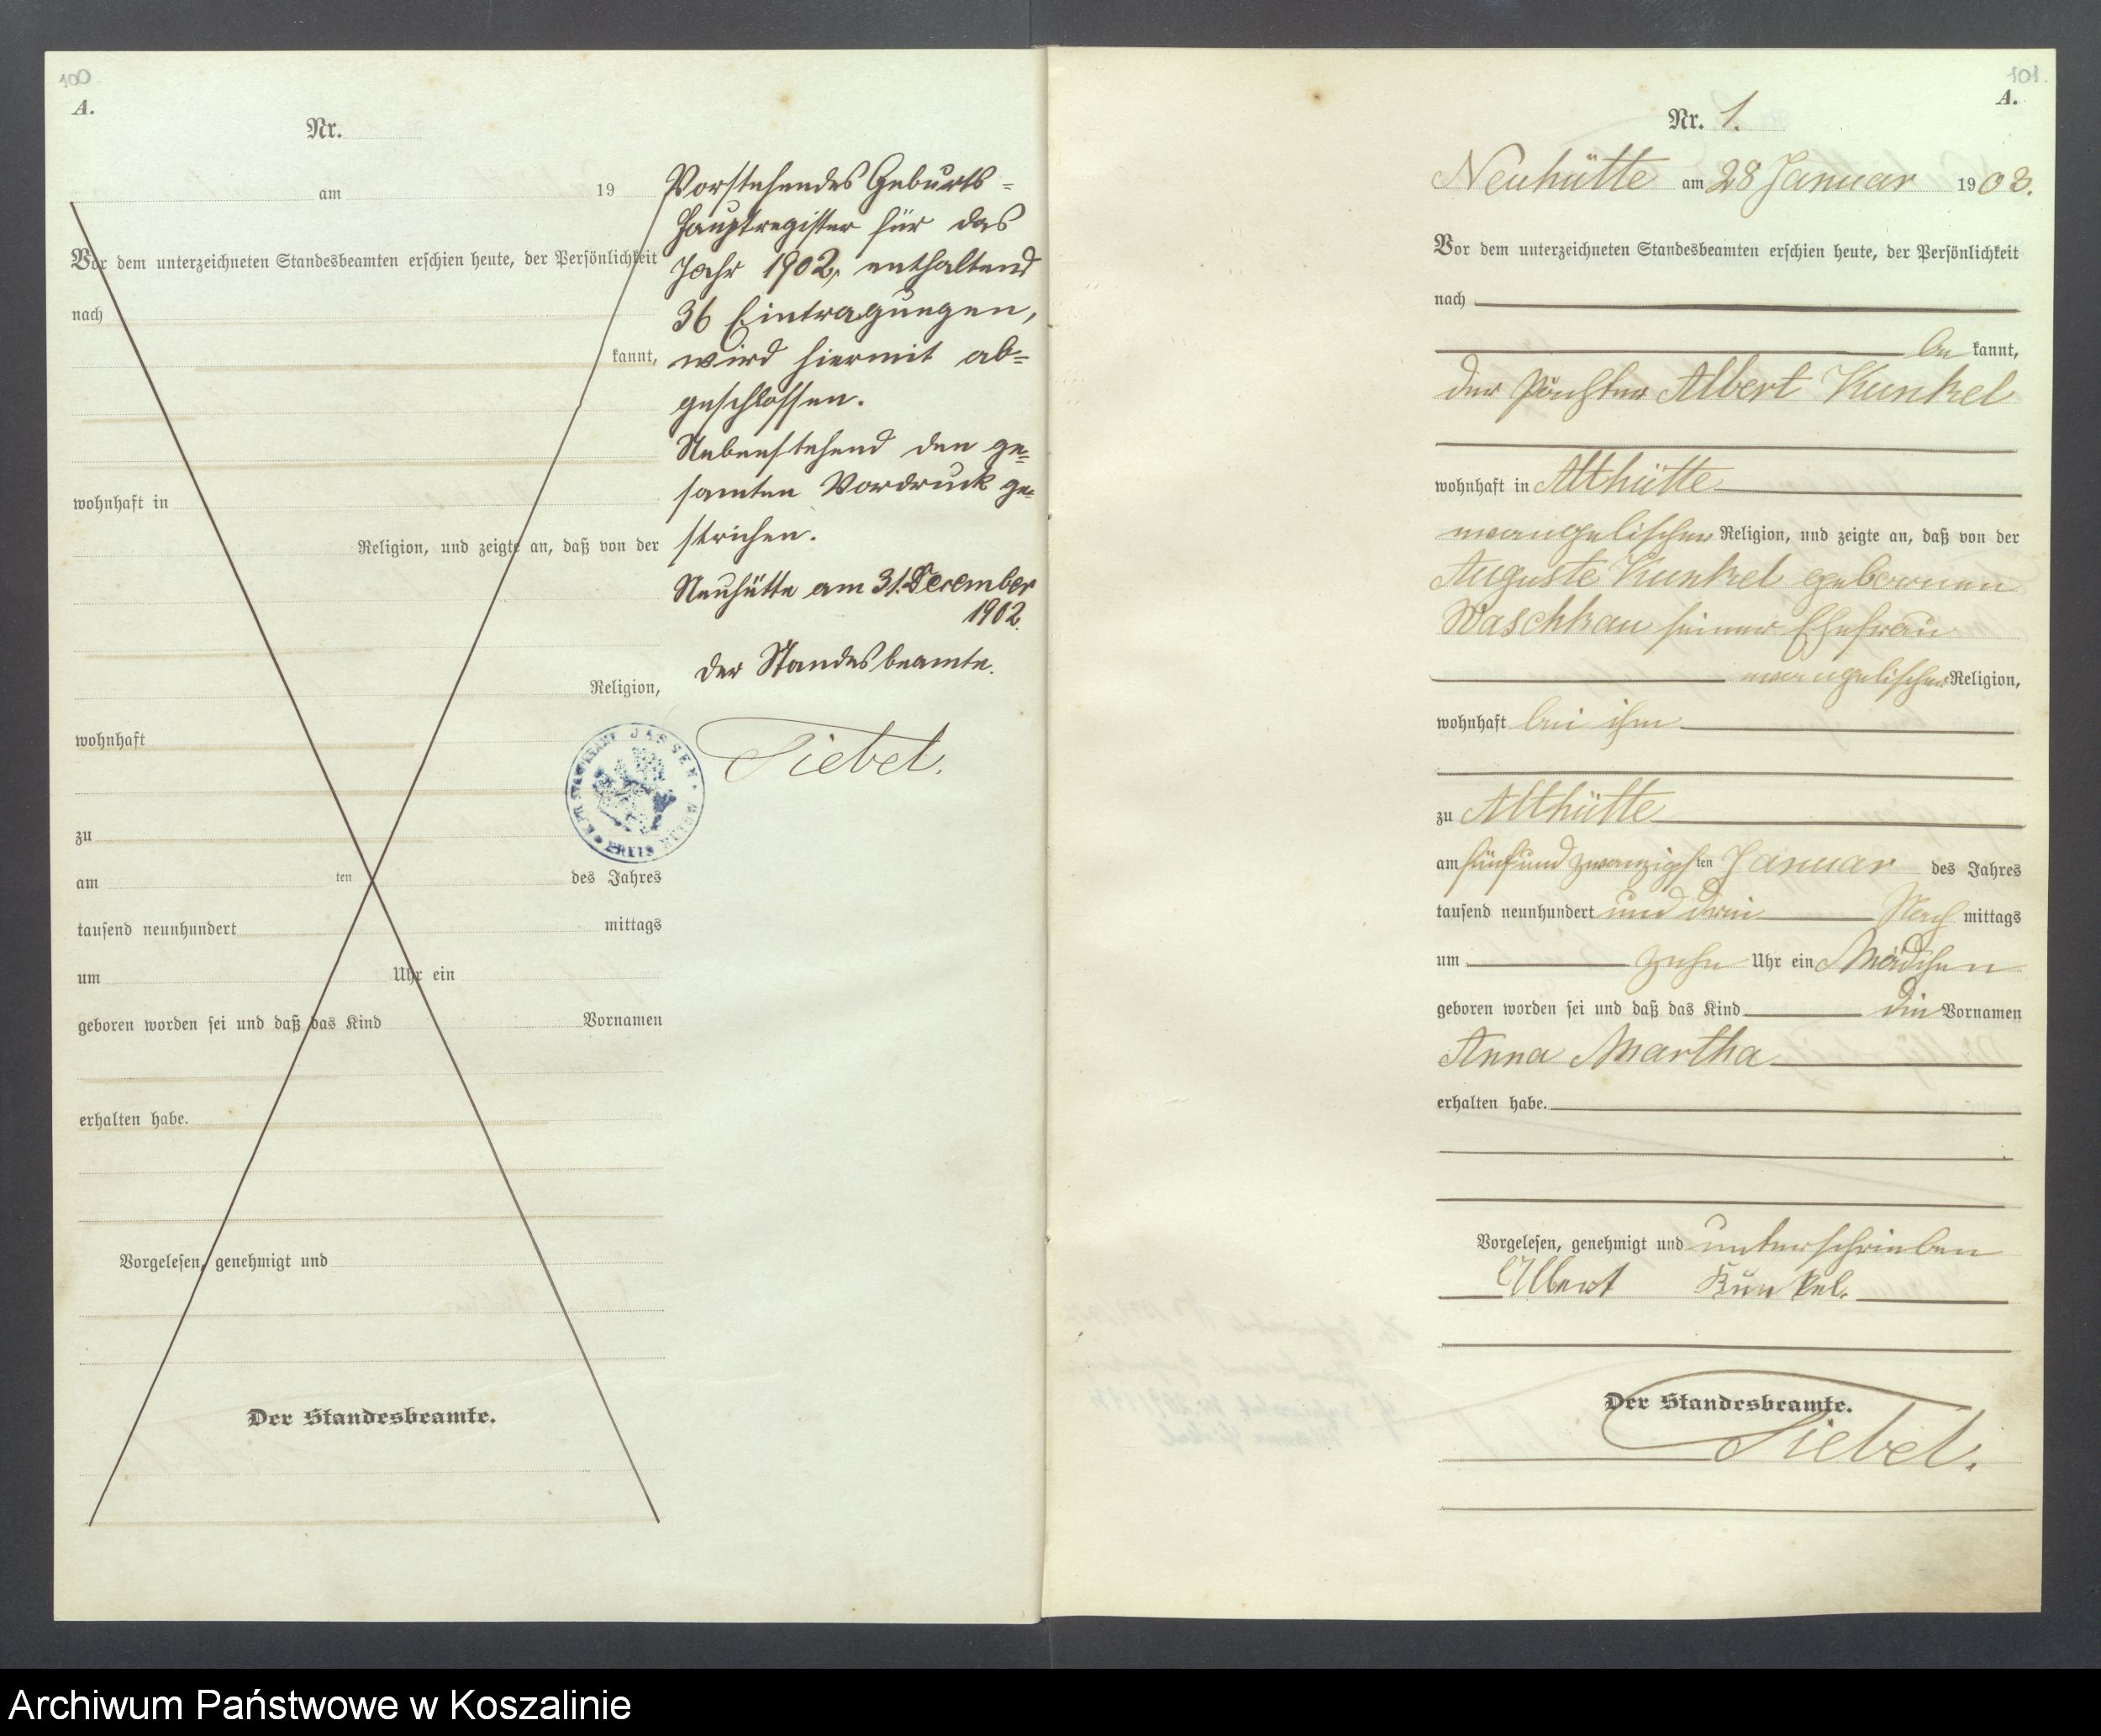 100.
A.
Nr.
am 19
Vor dem unterzeichneten Standesbeamten erschien heute, der Persönlichkeit
nach
kannt,
wohnhaft in
Religion, und zeigte an, daß von der
Religion,
wohnhaft
zu
am ten des Jahres
tausend neunhundert mittags
um Uhr ein
geboren worden sei und daß das Kind Vornamen
erhalten habe.
Vorgelesen, genehmigt und
Der Standesbeamte.
Vorstehendes Geburts-
hauptregister für das
Jahr 1902, enthaltend
36 Eintragungen,
wird hiermit ab-
geschlossen.
Nebenstehend den ge-
samten Vordruck ge-
strichen.
Neuhütte am 31. December
1902.
Der Standesbeamte.
Siebel.
STANDESAMT JASSEN
KREIS
101.
A.
Nr. 1.
Neuhütte am 28 Januar 1903.
Vor dem unterzeichneten Standesbeamten erschien heute, der Persönlichkeit
nach
be kannt,
der Pächter Albert Kunkel
wohnhaft in Althütte
evangelischer Religion, und zeigte an, daß von der
Auguste Kunkel geborenen
Waschkau seiner Ehefrau
evangelischer Religion,
wohnhaft bei ihm
zu Althütte
am fünfundzwanzigsten Januar des Jahres
tausend neunhundert und drei Nach mittags
um zehn Uhr ein Mädchen
geboren worden sei und daß das Kind die Vornamen
Anna Martha
erhalten habe.
Vorgelesen, genehmigt und unterschrieben
Albert Kunkel.
Der Standesbeamte.
Siebel.
Archiwum Państwowe w Koszalinie